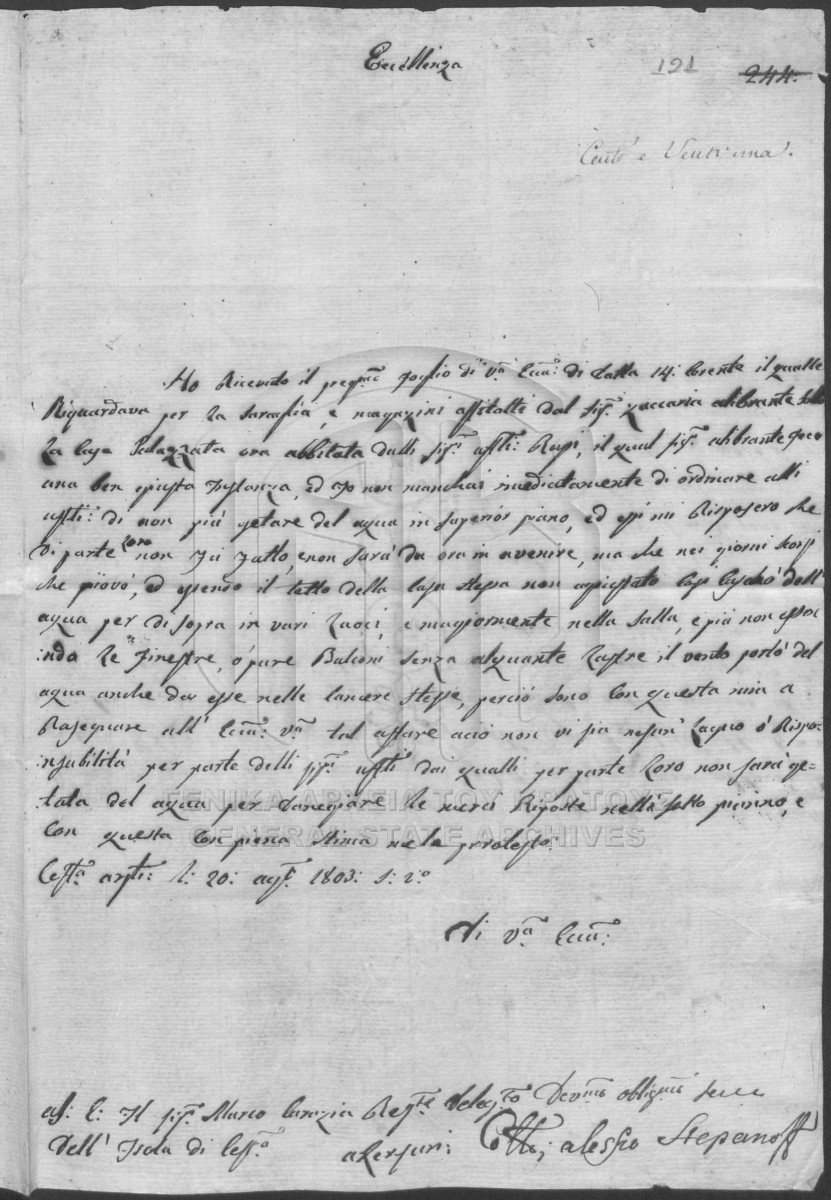 Eccellenza
121 244.
Cento e Ventiuna.
Ho Ricevuto il pregmo foglio di Va Ecca: di datta 14: Corente il qualle
Riguardava per la e magazini affitatti dal Sigr Zaccaria
la Casa Palazzata ora abbitata dalli Sigri uffli: Russi, il qual Sigr
una ben giusta Instanza, ed Io non mancai imediatamente di ordinare alli
uffli: di non piú getare del aqua in superior piano, ed essi mi Risposero che
di parte loro non fú fatto, e non sará da ora in avenire, ma che nei giorni scorsi
che piové, ed essendo il tetto della Casa stessa non agiustato Cosi Cascó dell'
aqua per di sopra in vari luoci, e magiormente nella salla, e piú non essen
:ndo le finestre, ó pure Balconi senza alquante lastre il vento portó del
aqua anche da esse nelle camere stesse, perció sono con questa mia a
Rasegnare all' Ecca: Va tal affare ació non vi sia nesun lagno ó Rispo-
:nsabilitá per parte delli Sigri uffli dai qualli per parte loro non sara ge-
:tata del aqua per danegiare le merci Riposte nella sotto pianino, e
con questa con piena stima me le protesto.
20: 1803: S: V:
ΓΕΝΙΚΑ ΑΡΧΕΙΑ ΤΟΥ ΚΡΑΤΟΥΣ
GENERAL STATE ARCHIVES
di Va Ecca:
Il Sigr Marco Regte Delegto Devmo obligmo
Dell' Isola di alessio Stepanoff